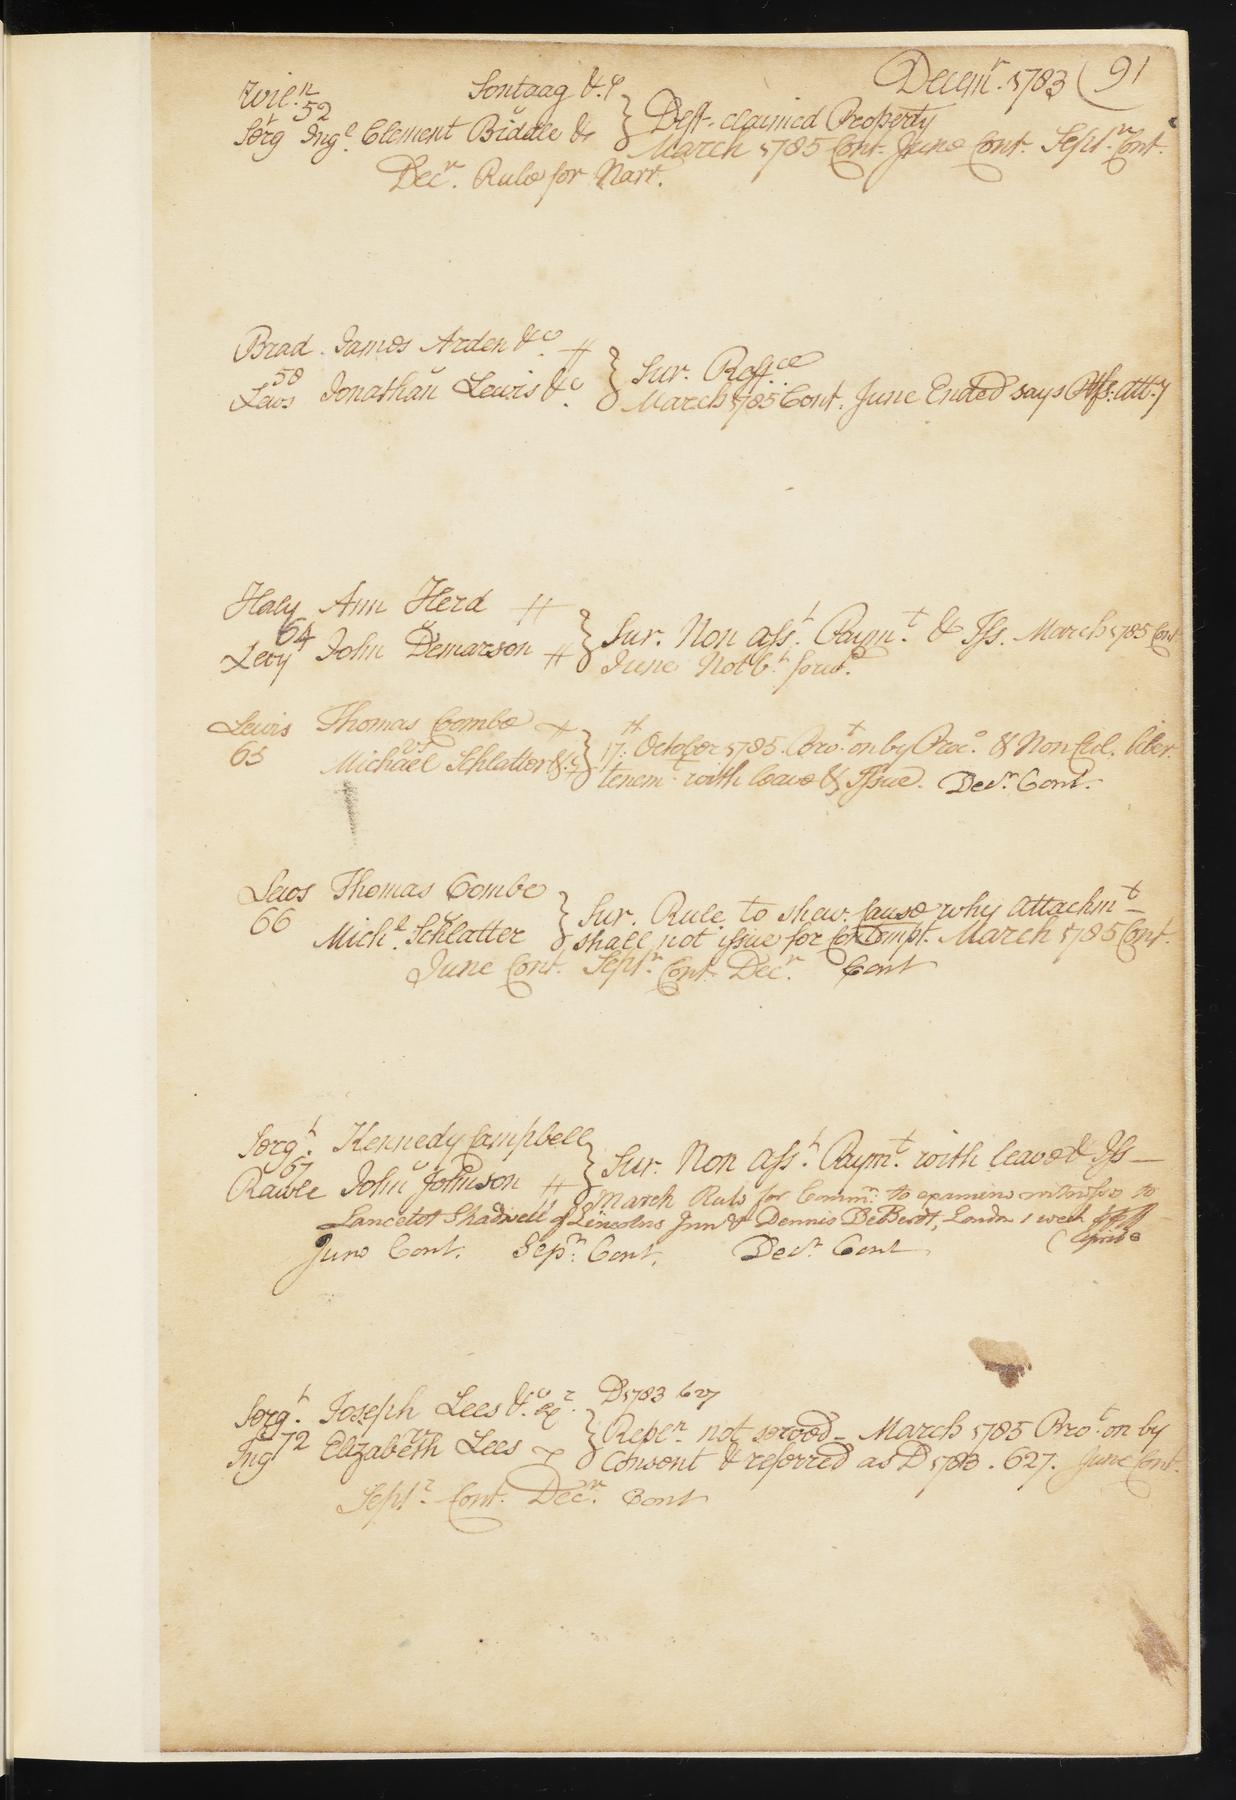 Decemr. 1783 (91
Wil.n Sontaag &.c
52
Serg Ing.l Clement Biddle &c } Deft. claimed Property
March 1785 Cont. June Cont. Septr. Cont.
Decr. Rule for Narr.
Brad. James Arden &c.
58 v
Lews Jonathan Lewis &c. } Sur. Reff.ce
March 1785 Cont. June Ended says Atty
Haly Ann Herd
64 v
Levy John Demarson } Sur. Non asst. Paymt. & Iss. March 1785 Cont
June Not bt. forwd.
Lewis Thomas Combe
65 vs
Michael Schlatter &.c } 17th. October 1785. Brot. on by Proco. & Non Cul. liber.
tenemt. with leave & Issue. Decr. Cont.
Lews Thomas Combe
66 v
Michl. Schlatter } Sur. Rule to shew cause why attachmt
shall not issue for contempt. March 1785 Cont.
June Cont. Septr. Cont. Decr. Cont
Sergt. Kennedy Campbell
67 v
Rawle John Johnson } Sur. Non Asst. Paymt. with leave & Iss
March Rule for Commn. to examine witnesses to
Lancelot Shadwell of Lincolns Inn & Dennis DeBerdt, London 1 week
June Cont. Sepr. Cont. Decr. Cont
Sergt. Joseph Lees &.c D 1783 627
72 vs
Ing Elizabeth Lees } Replr. not served March 1785 Brot. on by
Consent & referred as D 1783. 627. June Cont.
Septr. Cont. Decr. Cont